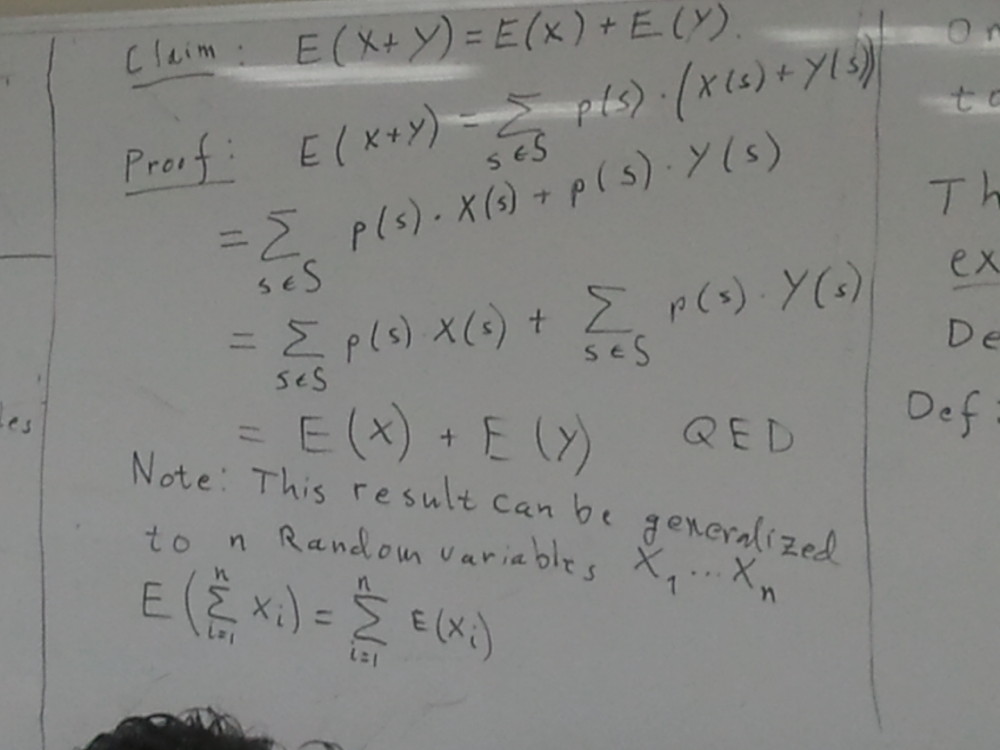 Claim: E(X+Y) = E(X) + E(Y).
Proof: E(X+Y) = ∑ p(s)·(X(s)+Y(s))
s∈S
= ∑ p(s)·X(s) + p(s)·Y(s)
s∈S
= ∑ p(s) X(s) + ∑ p(s)·Y(s)
s∈S s∈S
= E(X) + E(Y) QED
Note: This result can be generalized
to n Random variables X₁...Xₙ
n n
E(∑ Xᵢ) = ∑ E(Xᵢ)
i=1 i=1
les
Th
ex
De
Def: